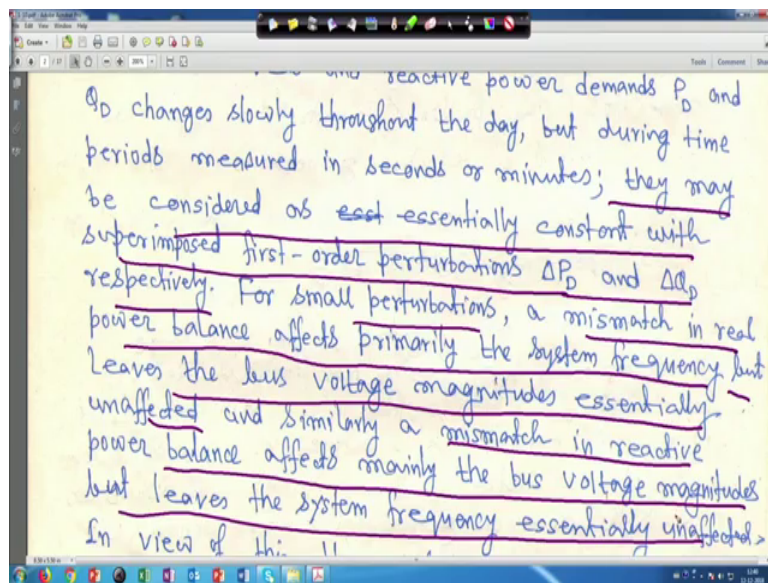 Create
2 / 17
200%
Tools Comment Sha
and reactive power demands P_D and
Q_D changes slowly throughout the day, but during time
periods measured in seconds or minutes; they may
be considered as esst essentially constant with
superimposed first-order perturbations ΔP_D and ΔQ_D
respectively. For small perturbations, a mismatch in real
power balance affects primarily the system frequency but
Leaves the bus voltage magnitudes essentially
unaffected and similarly a mismatch in reactive
power balance affects mainly the bus voltage magnitudes
but leaves the system frequency essentially unaffected.
In view of this